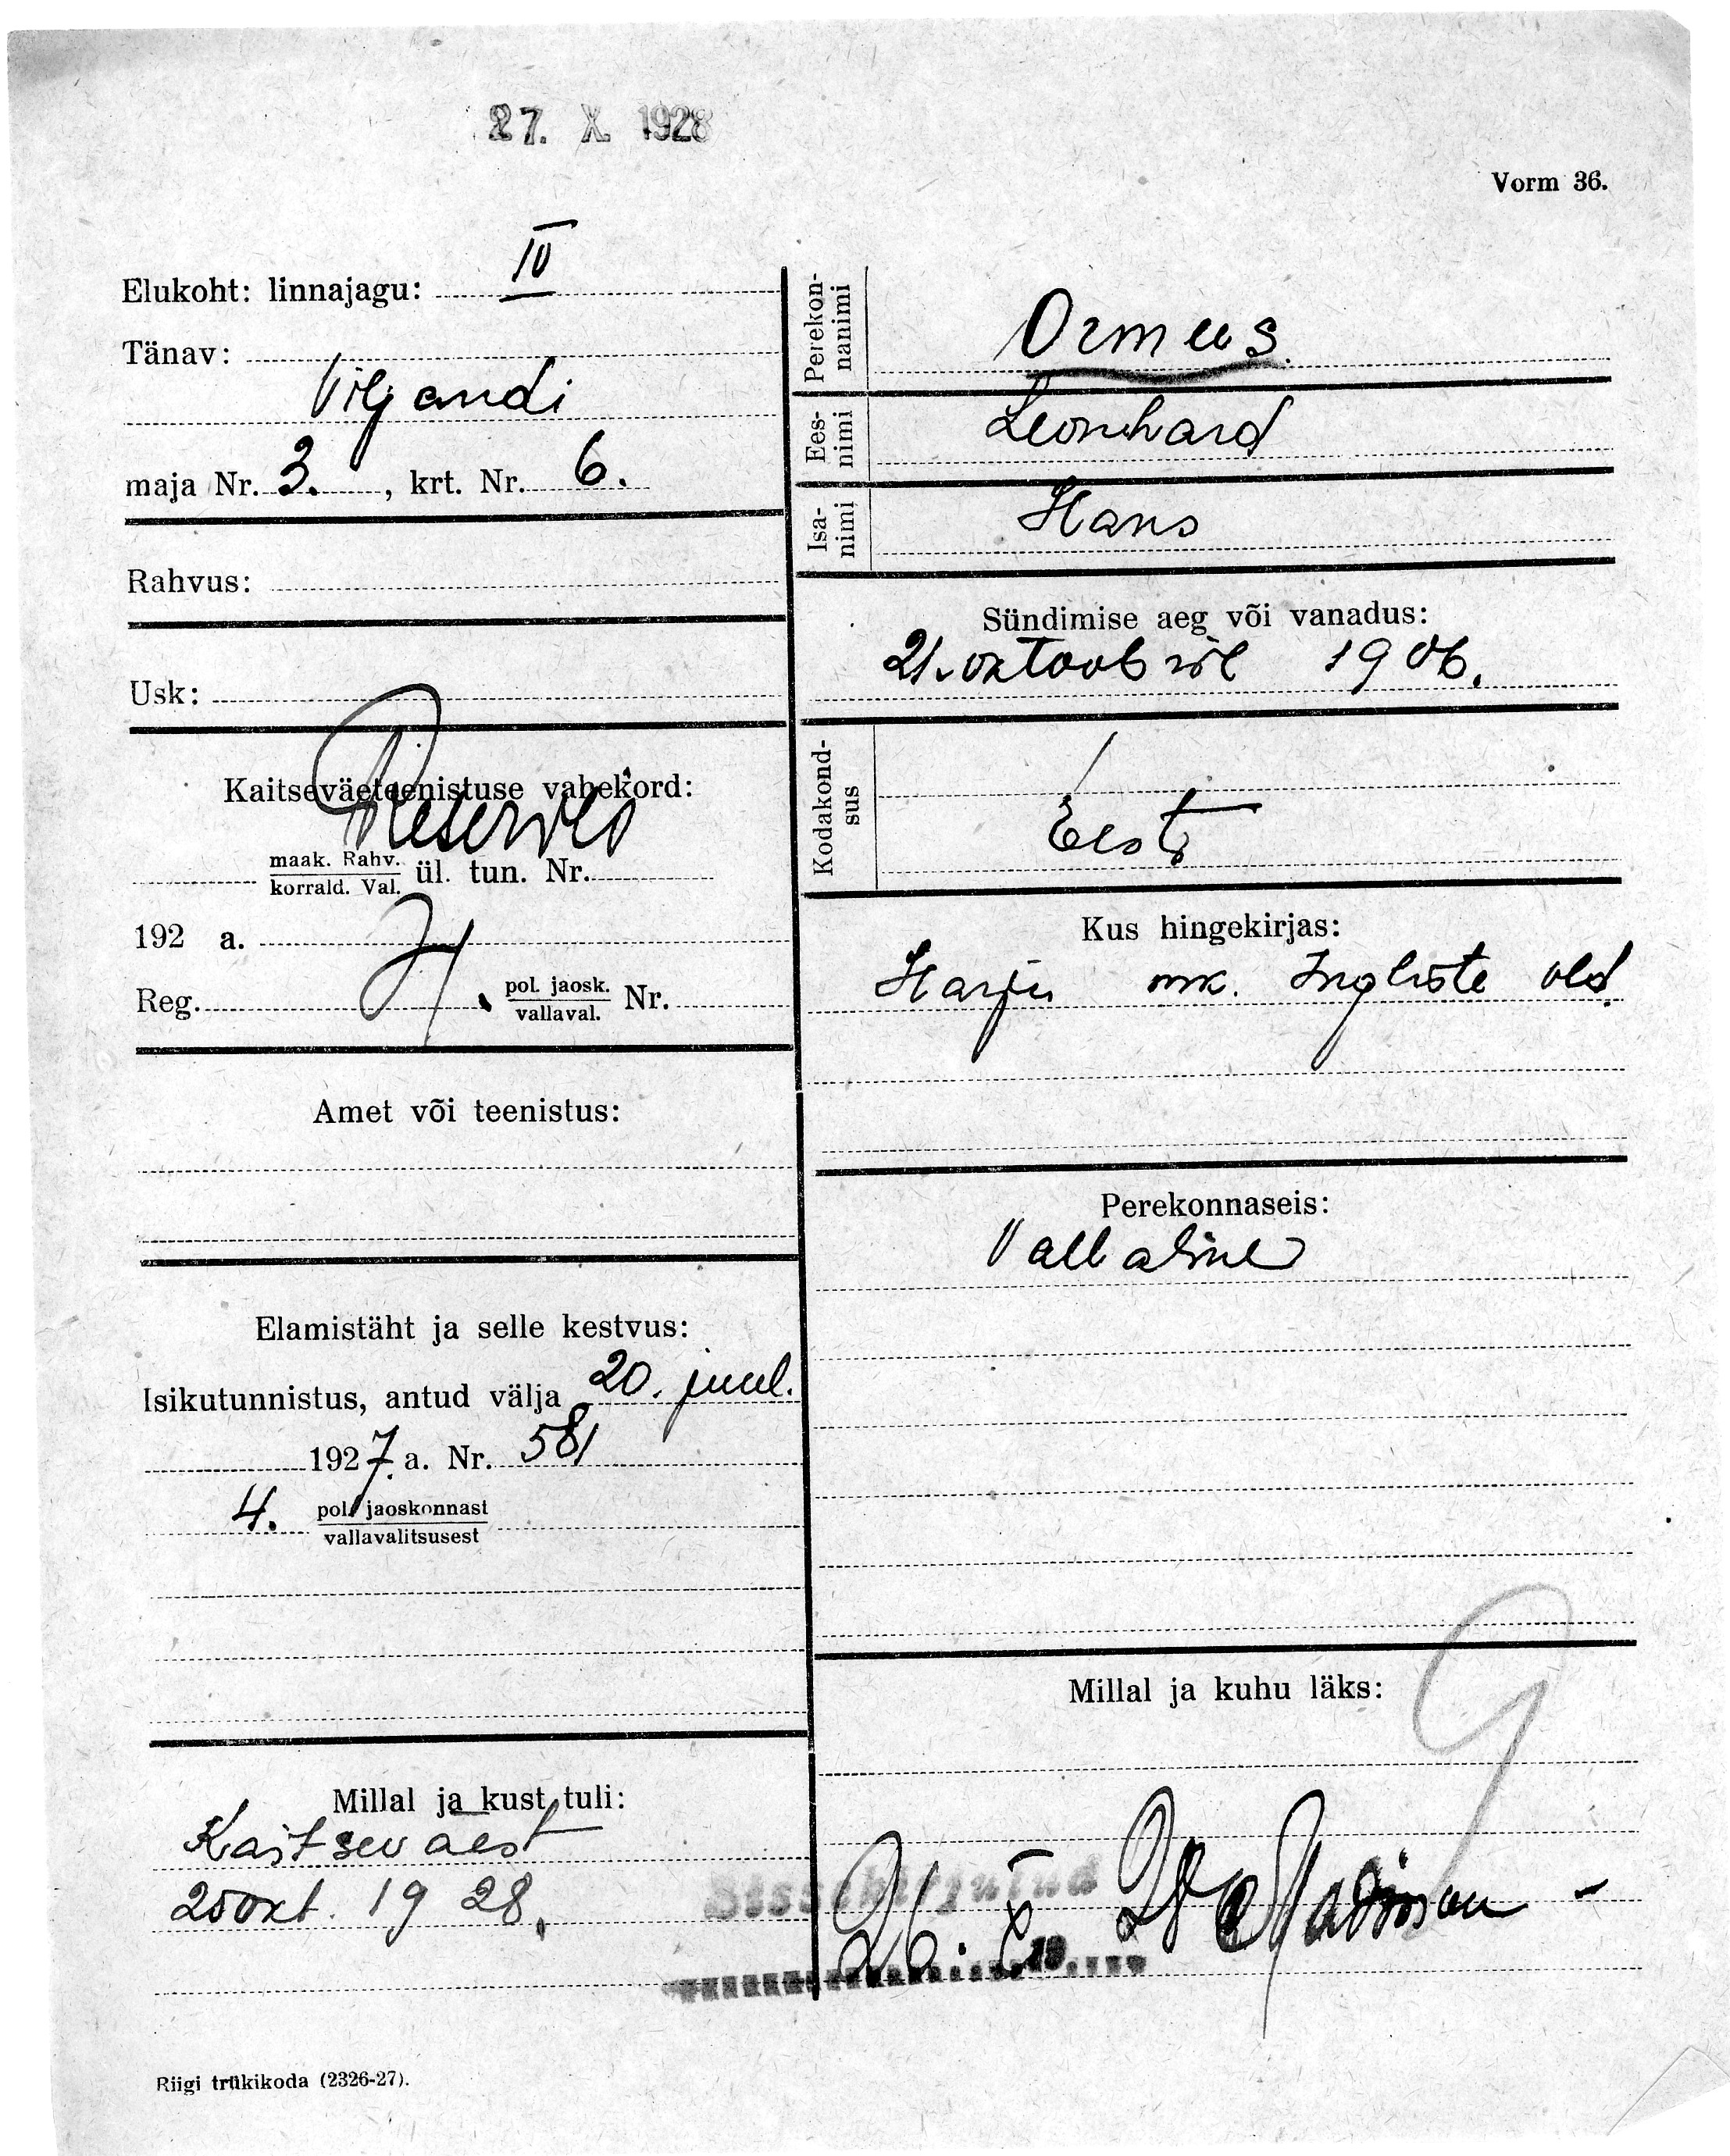 27. X 1928
Vorm 36.
Elukoht: linnajagu: IV
Tänav:
Viljandi
maja Nr. 3. , krt. Nr. 6.
Rahvus:
Usk:
Kaitseväeteenistuse vahekord:
Reservis
maak. Rahv.
korrald. Val. ül. tun. Nr.
192 a.
Reg. pol. jaosk.
vallaval. Nr.
Amet või teenistus:
Elamistäht ja selle kestvus:
Isikutunnistus, antud välja 20. juul.
1927. a. Nr. 581
4. pol. jaoskonnast
vallavalitsusest
Millal ja kust tuli:
Kaitseväest
25 okt. 19 28.
Perekon-
nanimi
Ormus
Ees-
nimi
Leonhard
Isa-
nimi
Hans
Sündimise aeg või vanadus:
21. oktoobril 1906.
Kodakond-
sus
Eesti
Kus hingekirjas:
Harju mk. Ingliste vld.
Perekonnaseis:
Vallaline
Millal ja kuhu läks:
Sissekirjutud
26. X
Riigi trükikoda (2326-27).